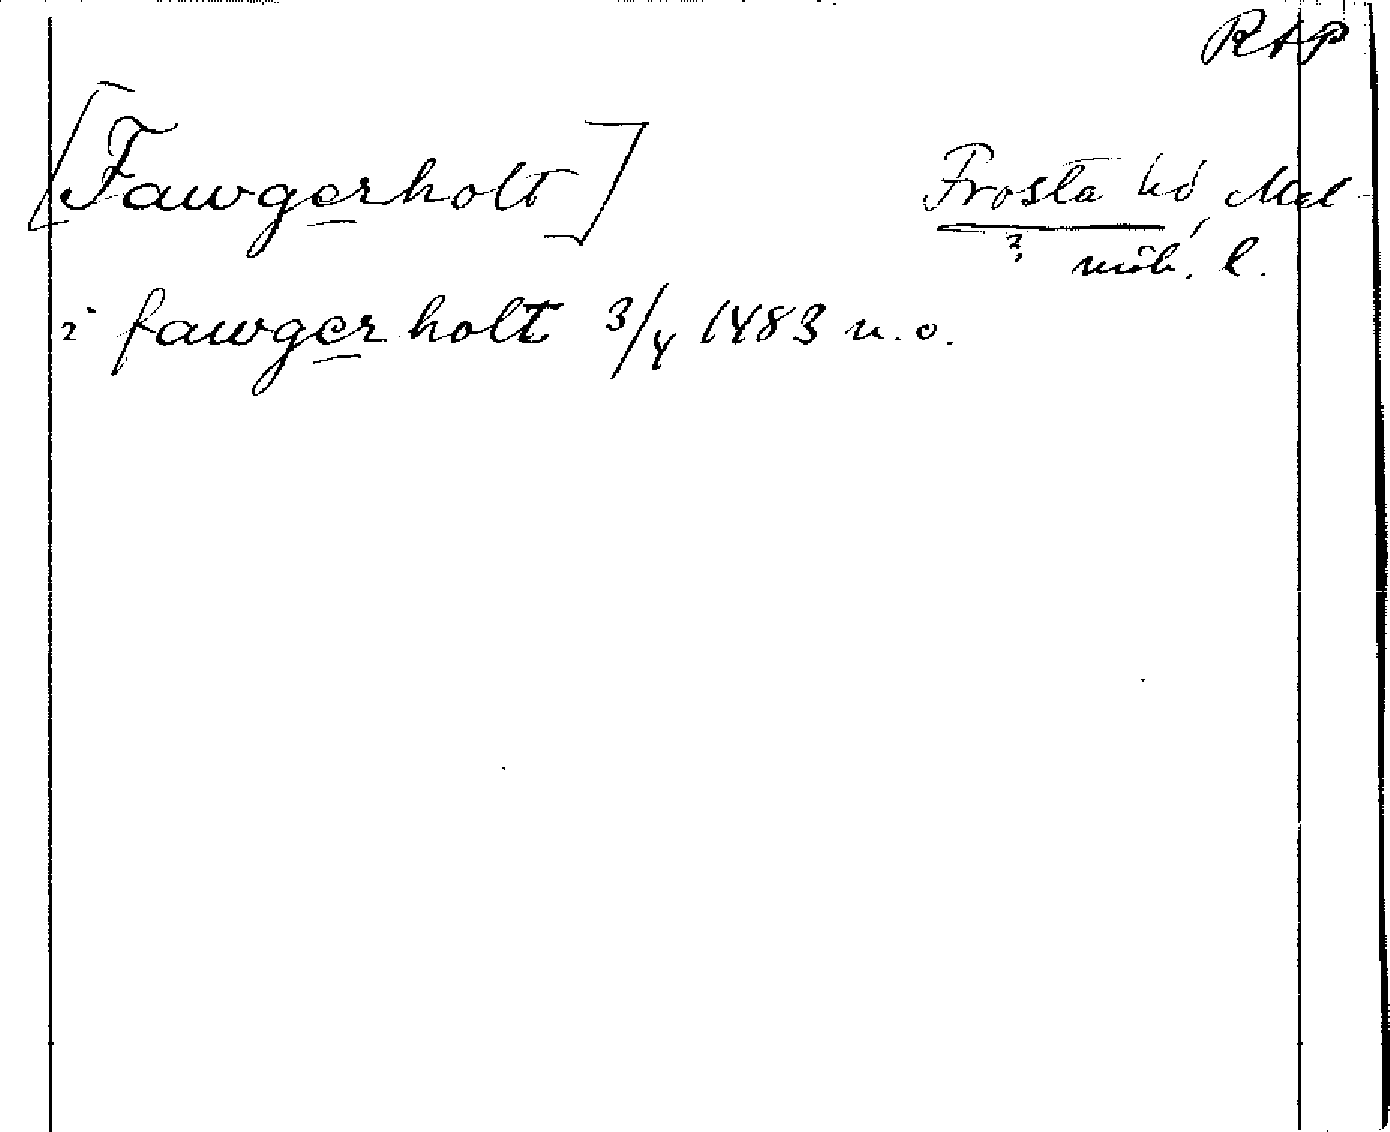 RAP
[Fawgerholt]
Frosta hd, Mal-
? möh. l.
i fawgerholt 3/4 1483 u. o.